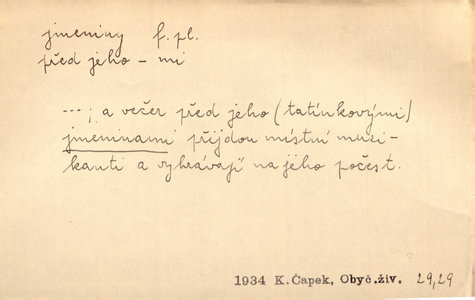 jmeniny f. pl.
před jeho - mi
---; a večer před jeho (tatínkovými)
jmeninami přijdou místní muzi-
kanti a vyhrávají na jeho počest.
1934 K.Čapek, Obyč.živ. 29,29